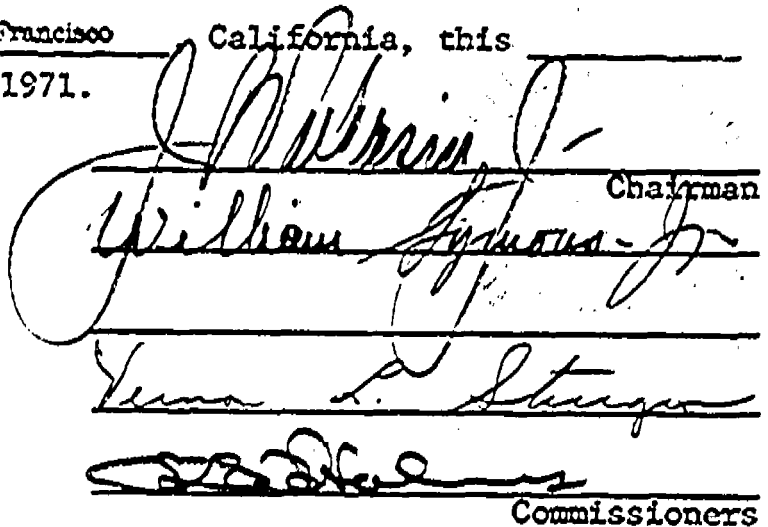 Francisco California, this
1971.
Chairman
William Symons Jr
Vernon L. Sturgeon
Commissioners